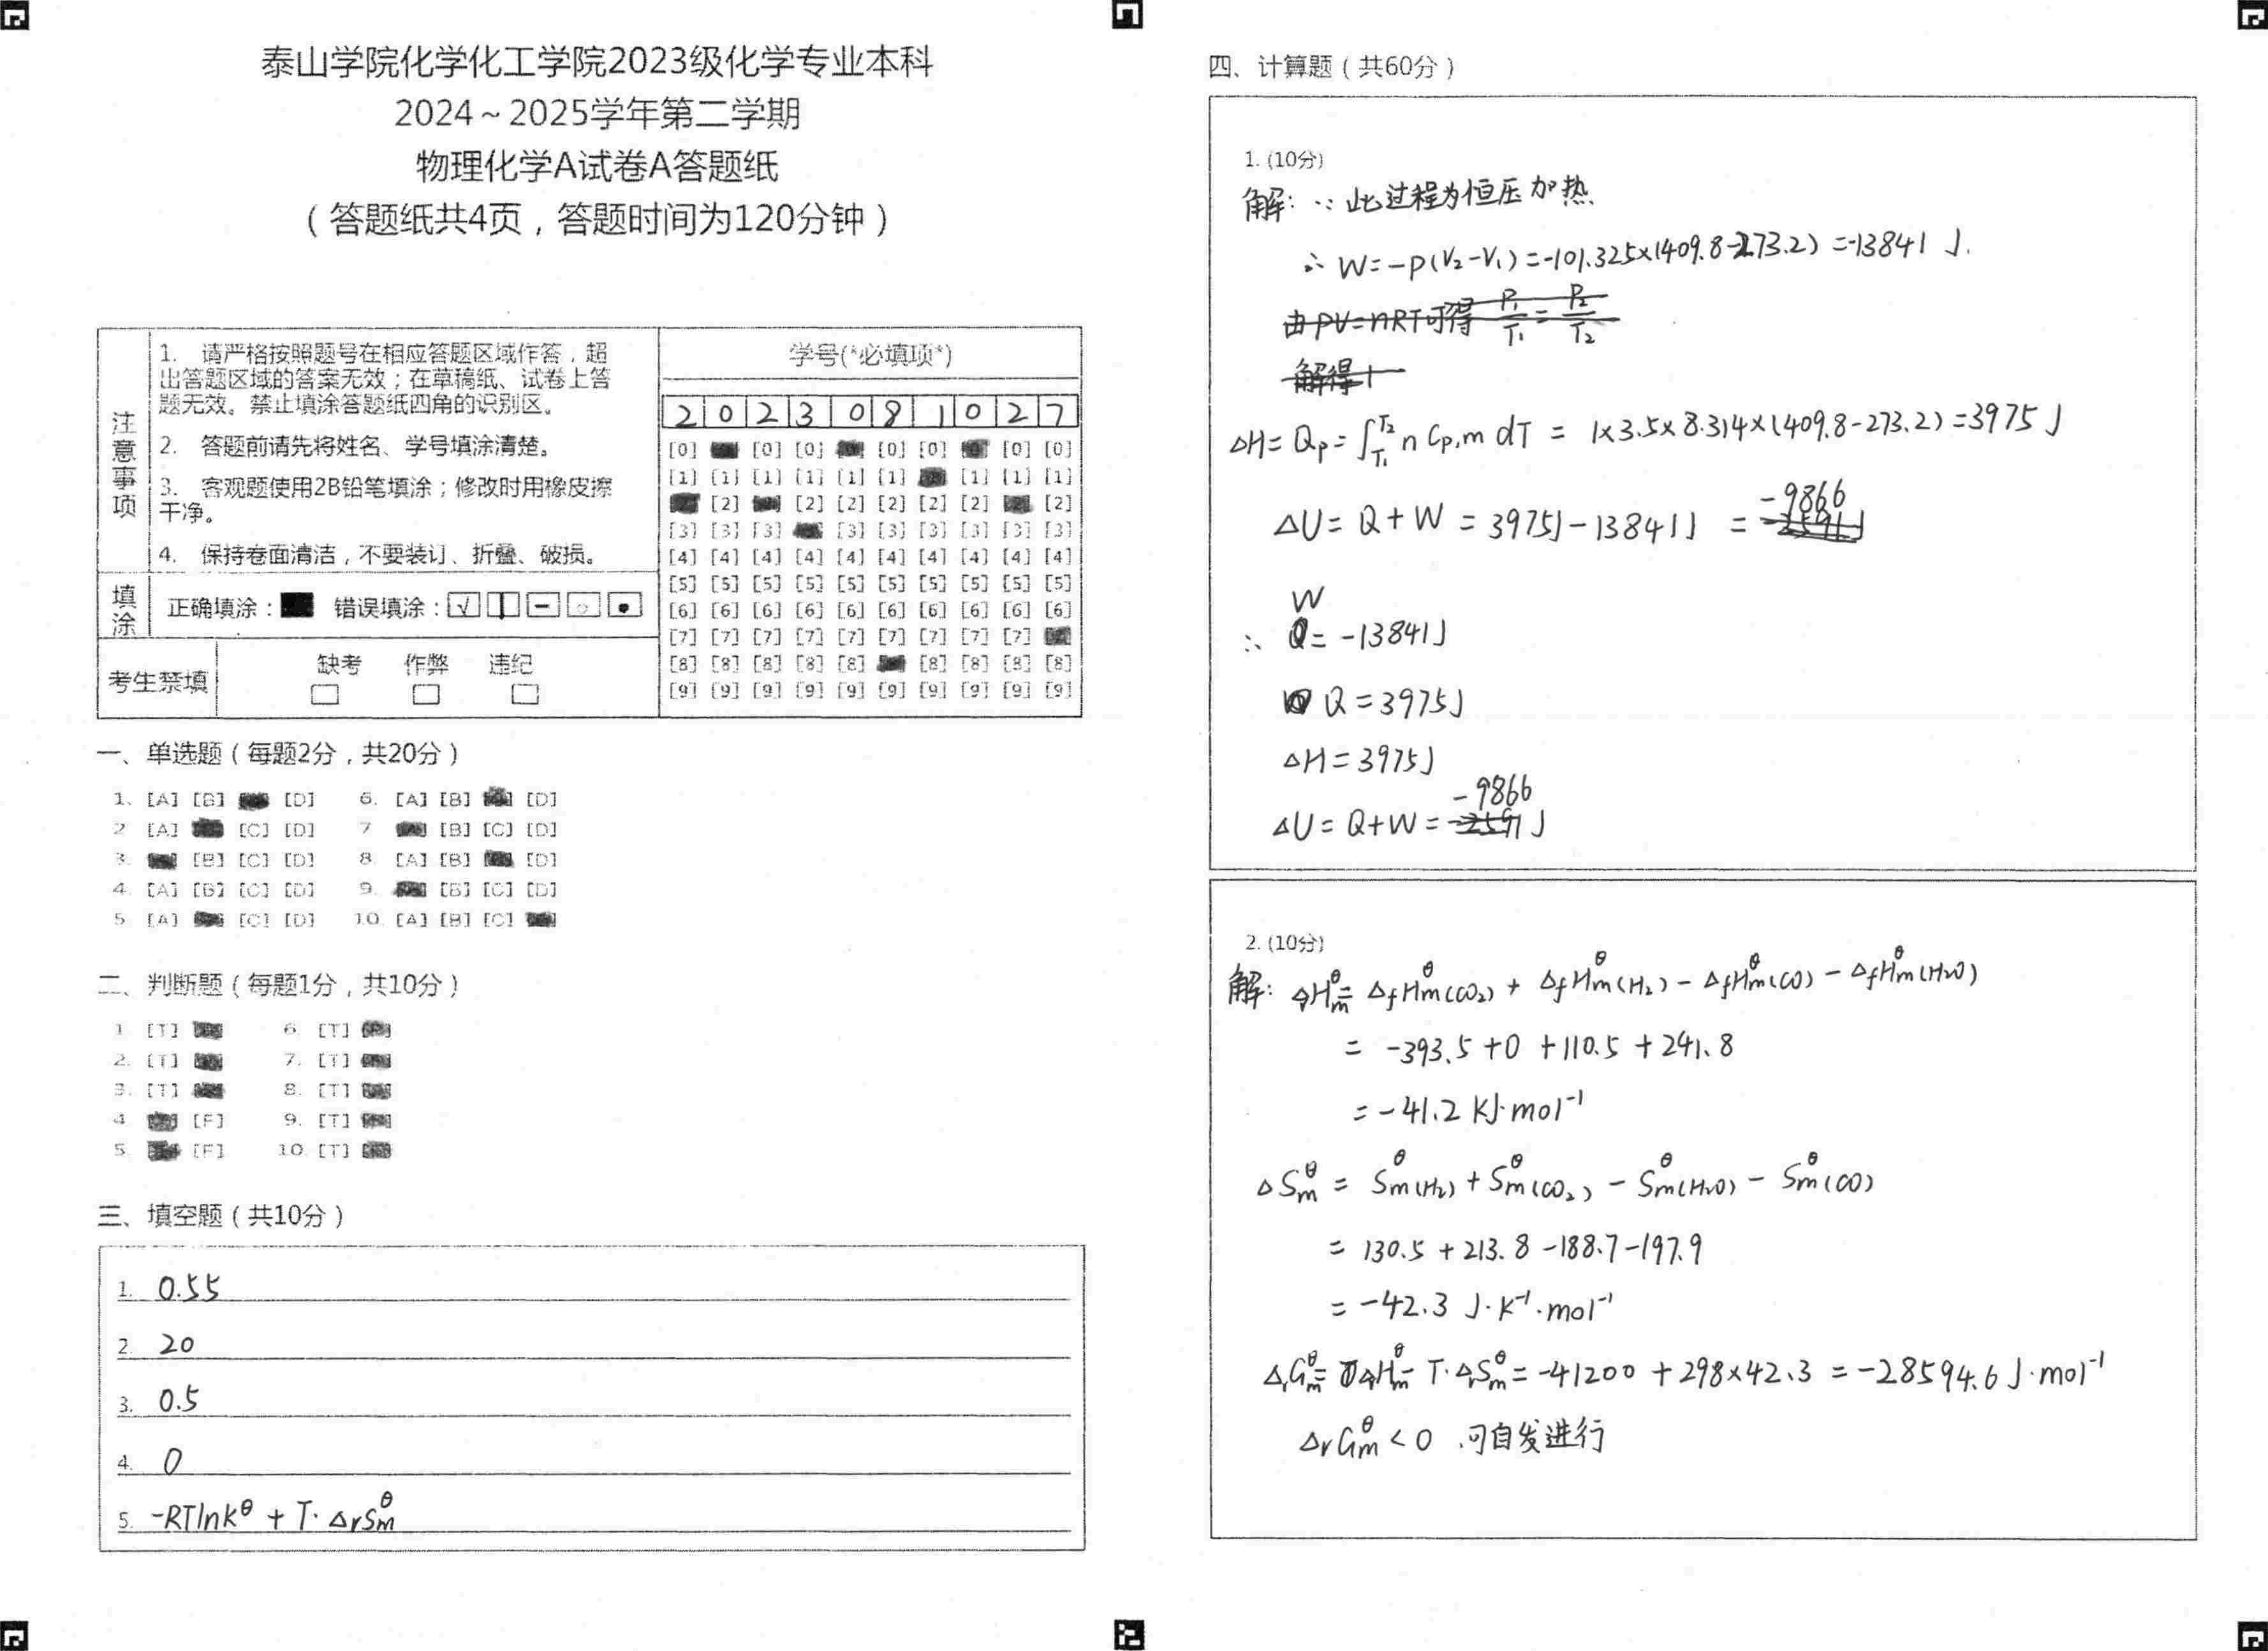 泰山学院化学化工学院2023级化学专业本科
2024～2025学年第二学期
物理化学A试卷A答题纸
（答题纸共4页，答题时间为120分钟）
注意事项
1. 请严格按照题号在相应答题区域作答，超
出答题区域的答案无效；在草稿纸、试卷上答
题无效。禁止填涂答题纸四角的识别区。
2. 答题前请先将姓名、学号填涂清楚。
3. 客观题使用2B铅笔填涂；修改时用橡皮擦
干净。
4. 保持卷面清洁，不要装订、折叠、破损。
填涂
正确填涂： 错误填涂：
考生禁填
缺考 作弊 违纪
学号(*必填项*)
2 0 2 3 0 8 1 0 2 7
[0] [0] [0] [0] [0] [0] [0]
[1] [1] [1] [1] [1] [1] [1] [1] [1]
[2] [2] [2] [2] [2] [2] [2]
[3] [3] [3] [3] [3] [3] [3] [3] [3]
[4] [4] [4] [4] [4] [4] [4] [4] [4] [4]
[5] [5] [5] [5] [5] [5] [5] [5] [5] [5]
[6] [6] [6] [6] [6] [6] [6] [6] [6] [6]
[7] [7] [7] [7] [7] [7] [7] [7] [7]
[8] [8] [8] [8] [8] [8] [8] [8] [8]
[9] [9] [9] [9] [9] [9] [9] [9] [9] [9]
一、单选题（每题2分，共20分）
1、 [A] [B] [D] 6. [A] [B] [D]
2 [A] [C] [D] 7 [B] [C] [D]
3. [B] [C] [D] 8 [A] [B] [D]
4. [A] [B] [C] [D] 9. [B] [C] [D]
5 [A] [C] [D] 10. [A] [B] [C]
二、判断题（每题1分，共10分）
1 [T] 6 [T]
2. [T] 7. [T]
3. [T] 8. [T]
4 [F] 9. [T]
5. [F] 10 [T]
三、填空题（共10分）
1. 0.55
2. 20
3. 0.5
4. 0
5. -RTlnKᶿ + T·ΔrSmᶿ
四、计算题（共60分）
1. (10分)
解：∵此过程为恒压加热
∴ W=-P(V₂-V₁)=-101.325×(409.8-273.2)=-13841 J.
由PV=nRT可得 P₁/T₁=P₂/T₂
解得
ΔH=Qp=∫T₁T₂ n Cp,m dT = 1×3.5×8.314×(409.8-273.2)=3975J
ΔU=Q+W=3975J-13841J = -9866
W
∴ =-13841J
Q=3975J
ΔH=3975J
ΔU=Q+W=-9866 J
2. (10分)
解: ΔrHmᶿ= ΔfHmᶿ(CO₂) + ΔfHmᶿ(H₂) - ΔfHmᶿ(CO) - ΔfHmᶿ(H₂O)
= -393.5 +0 +110.5 +241.8
= -41.2 KJ·mol⁻¹
ΔSmᶿ = Smᶿ(H₂) + Smᶿ(CO₂) - Smᶿ(H₂O) - Smᶿ(CO)
= 130.5 +213.8 -188.7-197.9
= -42.3 J·K⁻¹·mol⁻¹
ΔrGmᶿ= ΔrHmᶿ- T·ΔrSmᶿ= -41200 +298×42.3 = -28594.6 J·mol⁻¹
ΔrGmᶿ<0 .可自发进行